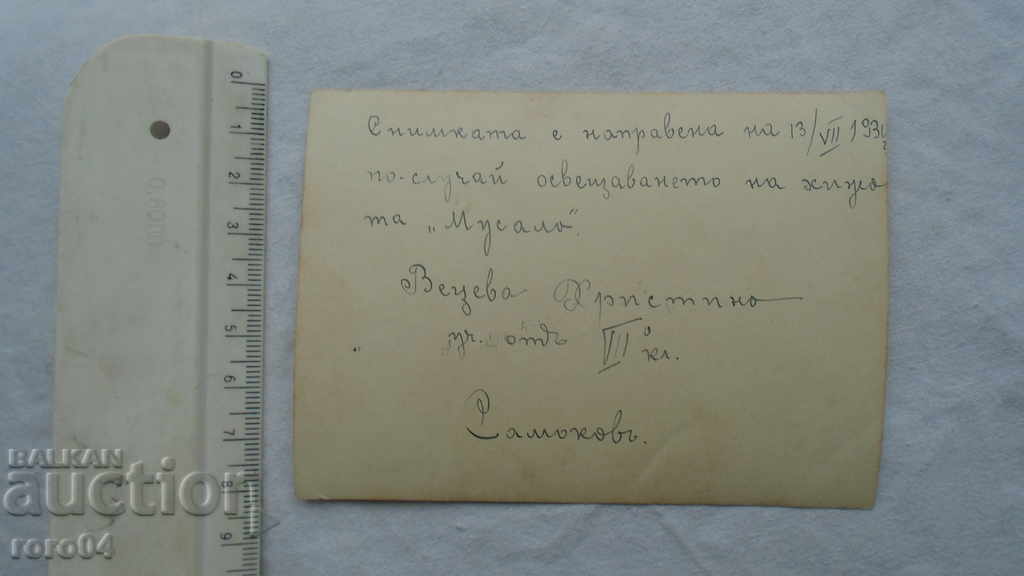 Снимката е направена на 13/VII 193
по-случай освещаването на хижа
та „Мусала".
Вецева Христина
уч. отъ VII о кл.
Самоковъ.
0 1 2 3 4 5 6 7 8 9
BALKAN
auction
roro04